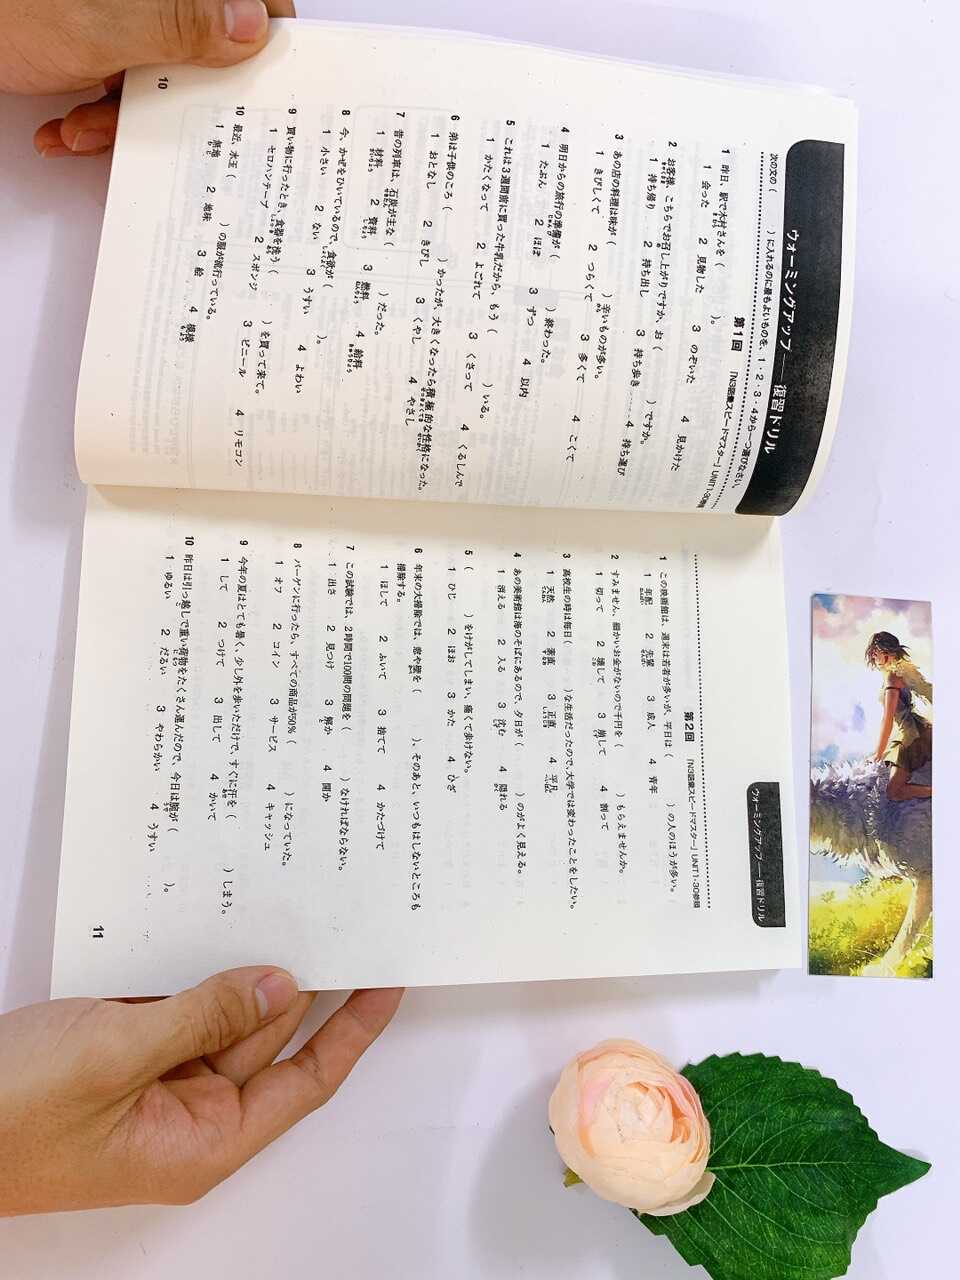 ウォーミングアップ――復習ドリル
次の文の（　　）に入れるのに最もよいものを、1・2・3・4から一つ選びなさい。
第1回
『N3語彙スピードマスター』UNIT1-30参照
1 昨日、駅で木村さんを（　　）。
1 会った 2 見物した 3 のぞいた 4 見かけた
2 お客様、こちらでお召し上がりですか、お（　　）ですか。
1 持ち帰り 2 持ち出し 3 持ち歩き 4 持ち運び
3 あの店の料理は味が（　　）、辛いものが多い。
1 きびしくて 2 つらくて 3 多くて 4 こくて
4 明日からの旅行の準備が（　　）終わった。
1 たぶん 2 ほぼ 3 ずつ 4 以内
5 これは3週間前に買った牛乳だから、もう（　　）いる。
1 かたくなって 2 よごれて 3 くさって 4 くるしんで
6 弟は子供のころ（　　）かったが、大きくなったら積極的な性格になった。
1 おとなし 2 きびし 3 くやし 4 やさし
7 昔の列車は、石炭が主な（　　）だった。
1 材料 2 資料 3 燃料 4 給料
8 今、かぜをひいているので、食欲が（　　）。
1 小さい 2 ない 3 うすい 4 よわい
9 買い物に行ったとき、食器を洗う（　　）を買って来て。
1 セロハンテープ 2 スポンジ 3 ビニール 4 リモコン
10 最近、水玉（　　）の服が流行っている。
1 無地 2 地味 3 絵 4 模様
10
ウォーミングアップ――復習ドリル
第2回
『N3語彙スピードマスター』UNIT1-30参照
1 この映画館は、週末は若者が多いが、平日は（　　）の人のほうが多い。
1 年配 2 先輩 3 成人 4 青年
2 すみません、細かいお金がないので千円を（　　）もらえませんか。
1 切って 2 壊して 3 崩して 4 割って
3 高校生の時は毎日（　　）な生活だったので、大学では変わったことをしたい。
1 天然 2 素直 3 正直 4 平凡
4 あの美術館は海のそばにあるので、夕日が（　　）のがよく見える。
1 消える 2 入る 3 沈む 4 隠れる
5 （　　）をけがしてしまい、痛くて歩けない。
1 ひじ 2 ほお 3 かた 4 ひざ
6 年末の大掃除では、窓や壁を（　　）、そのあと、いつもはしないところも
掃除する。
1 ほして 2 ふいて 3 捨てて 4 かたづけて
7 この試験では、2時間で100問の問題を（　　）なければならない。
1 出さ 2 見つけ 3 解か 4 開か
8 バーゲンに行ったら、すべての商品が50%（　　）になっていた。
1 オフ 2 コイン 3 サービス 4 キャッシュ
9 今年の夏はとても暑く、少し外を歩いただけで、すぐに汗を（　　）しまう。
1 して 2 つけて 3 出して 4 かいて
10 昨日は引っ越しで重い荷物をたくさん運んだので、今日は腕が（　　）。
1 ゆるい 2 だるい 3 やわらかい 4 うすい
11